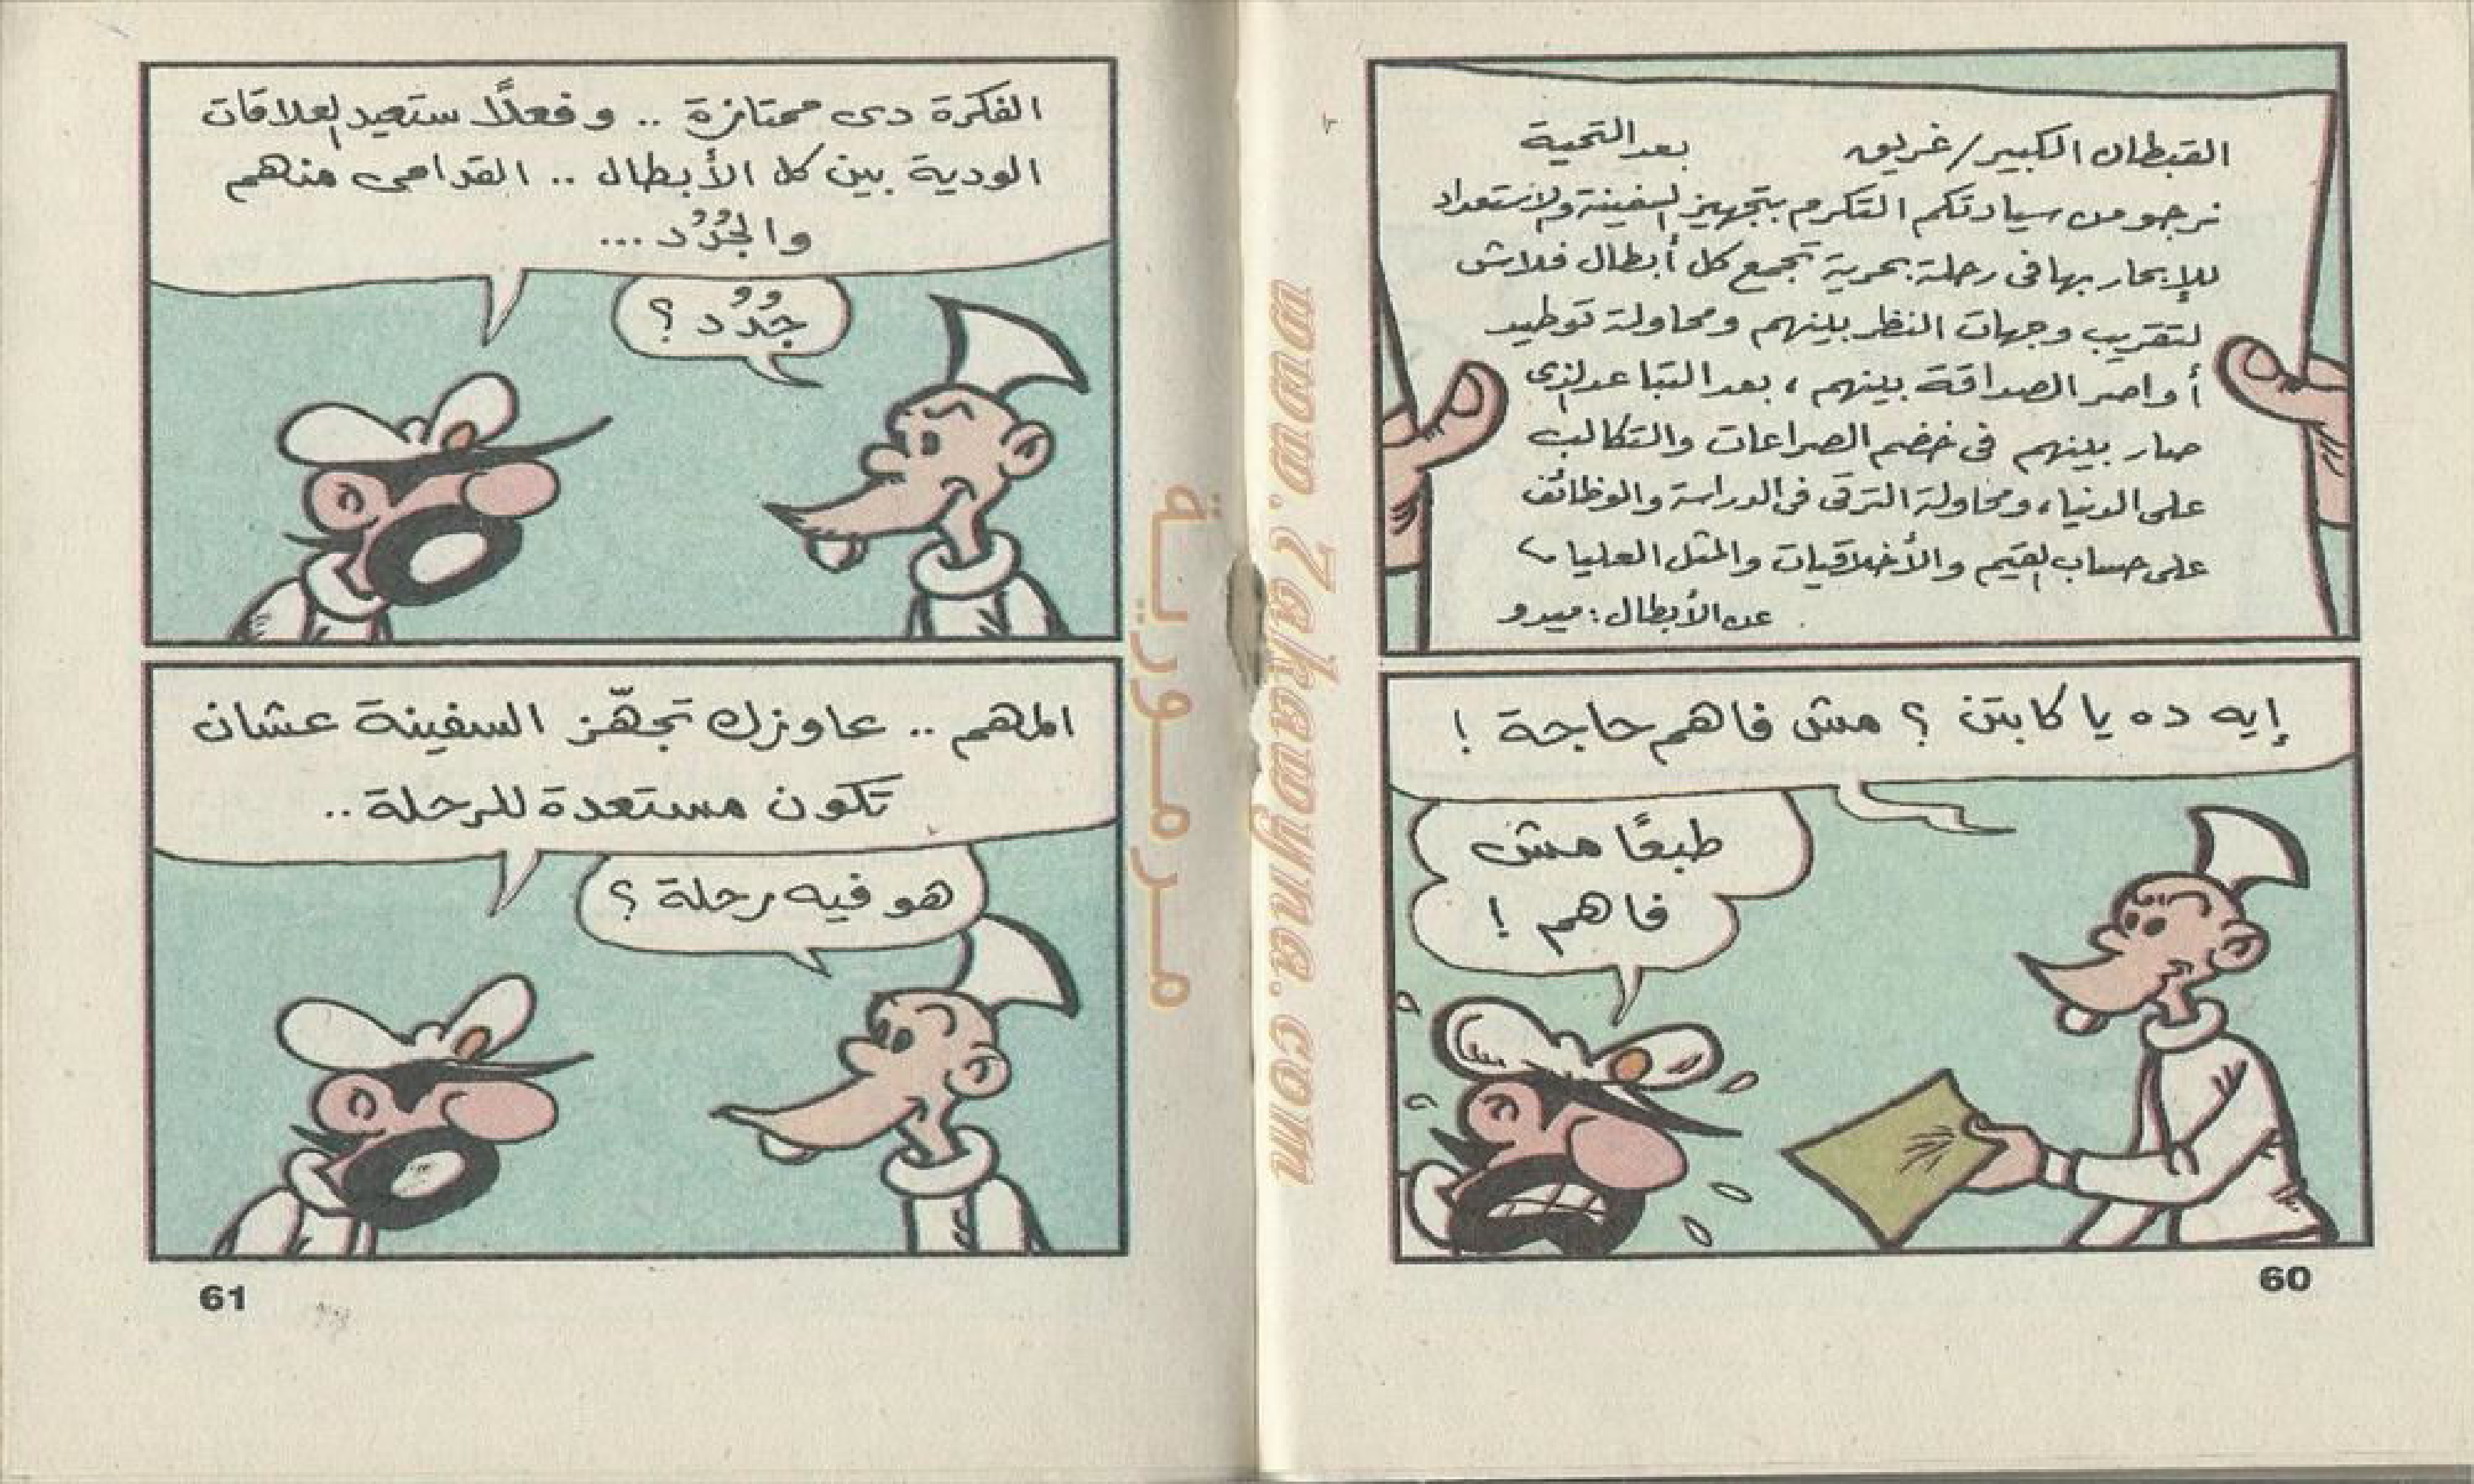 القبطان الكبير/غريق بعد التحية
نرجو من سيادتكم التكرم بتجهيز السفينة والاستعداد
للإبحار بها فى رحلة بحرية تجمع كل أبطال فلاش
لتقريب وجهات النظر بينهم ومحاولة توطيد
أواصر الصداقة بينهم، بعد التباعد الذى
صار بينهم فى خضم الصراعات والتكالب
على الدنيا، ومحاولة الترقى فى الدراسة والوظائف
على حساب القيم والأخلاقيات والمثل العليا
عن الأبطال: ميدو
إيه ده يا كابتن ؟ مش فاهم حاجة !
طبعًا مش
فاهم !
60
الفكرة دى ممتازة .. و فعلًا ستعيد العلاقات
الودية بين كل الأبطال .. القدامى منهم
والجُدُد ...
جُدُد ؟
المهم .. عاوزك تجهّز السفينة عشان
تكون مستعدة للرحلة ..
هو فيه رحلة ؟
61
مـرمـوريـة
www.Zakawyna.com